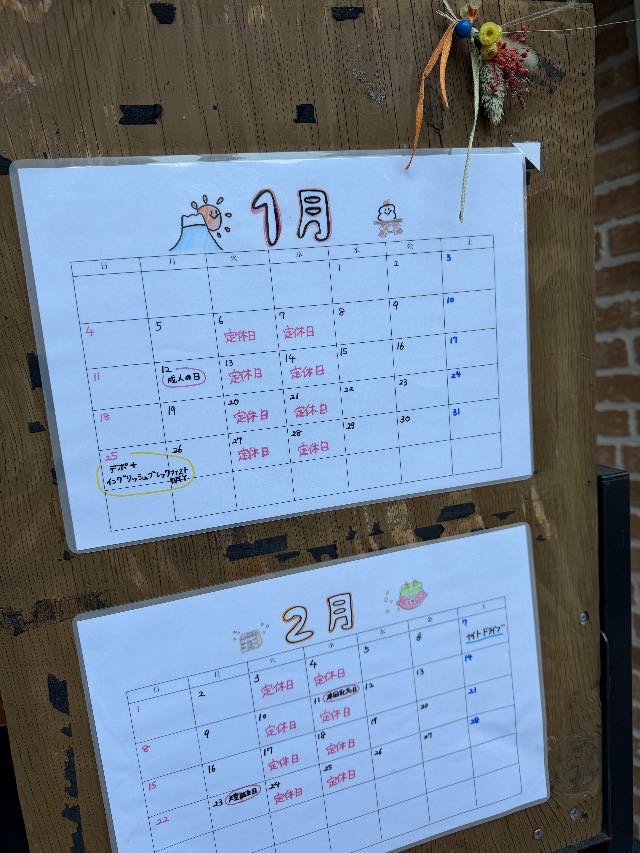 1月
日 月 火 水 木 金 土
1 2 3
4 5 6 7 8 9 10
定休日 定休日
11 12 13 14 15 16 17
成人の日 定休日 定休日
18 19 20 21 22 23 24
定休日 定休日
25 26 27 28 29 30 31
定休日 定休日
デポ+
イングリッシュブレックファスト
2月
日 月 火 水 木 金 土
1 2 3 4 5 6 7
定休日 定休日 ナイトドライブ
8 9 10 11 12 13 14
建国記念日
定休日 定休日
15 16 17 18 19 20 21
定休日 定休日
22 23 24 25 26 27 28
天皇誕生日 定休日 定休日